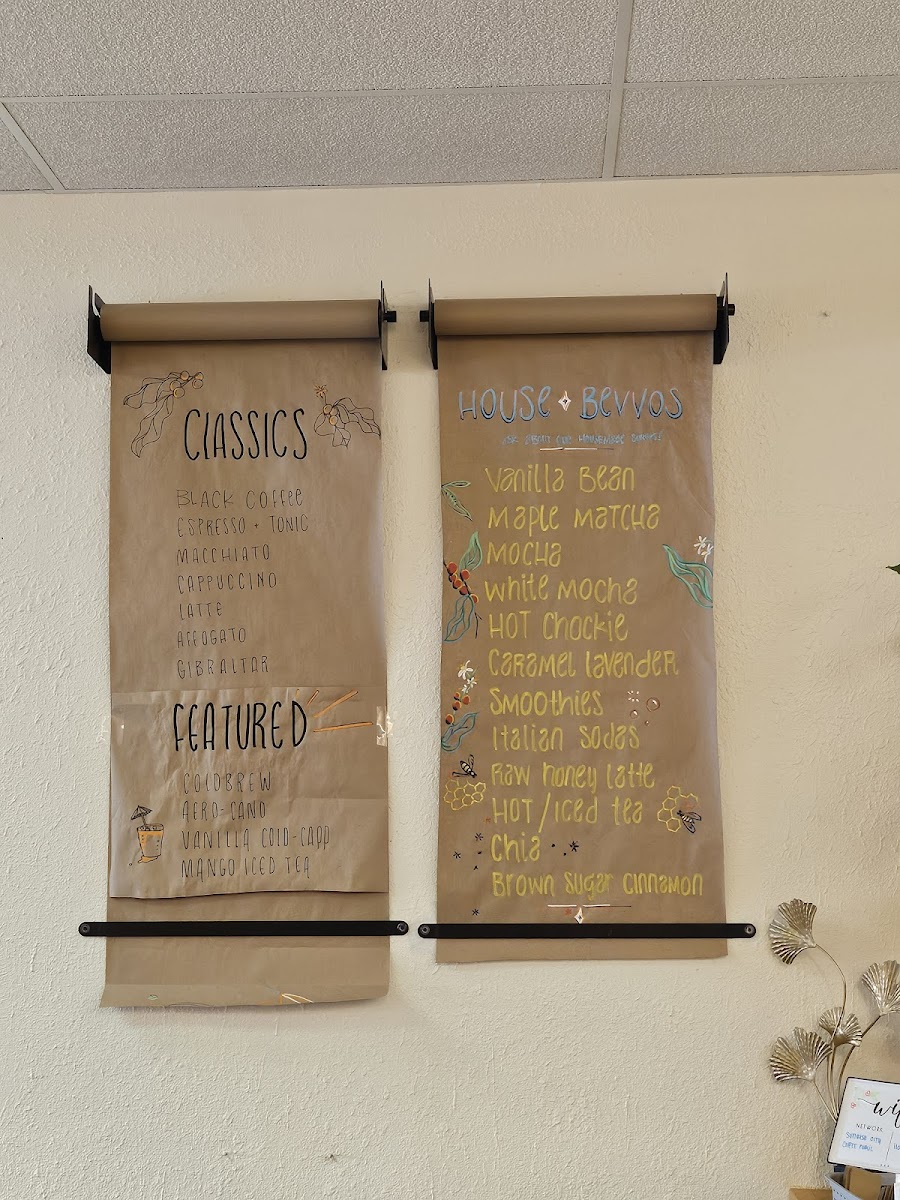 CLASSICS
BLACK COFFEE
ESPRESSO + TONIC
MACCHIATO
CAPPUCCINO
LATTE
AFFOGATO
GIBRALTAR
FEATURED
COLDBREW
AERO-CANO
VANILLA COLD-CAPP
MANGO ICED TEA
HOUSE BEVVOS
ASK ABOUT OUR HOUSEMADE
Vanilla Bean
Maple Matcha
Mocha
White Mocha
HOT Chockie
Caramel lavender
Smoothies
Italian Sodas
Raw honey latte
HOT/Iced tea
Chia
Brown Sugar Cinnamon
NETWORK